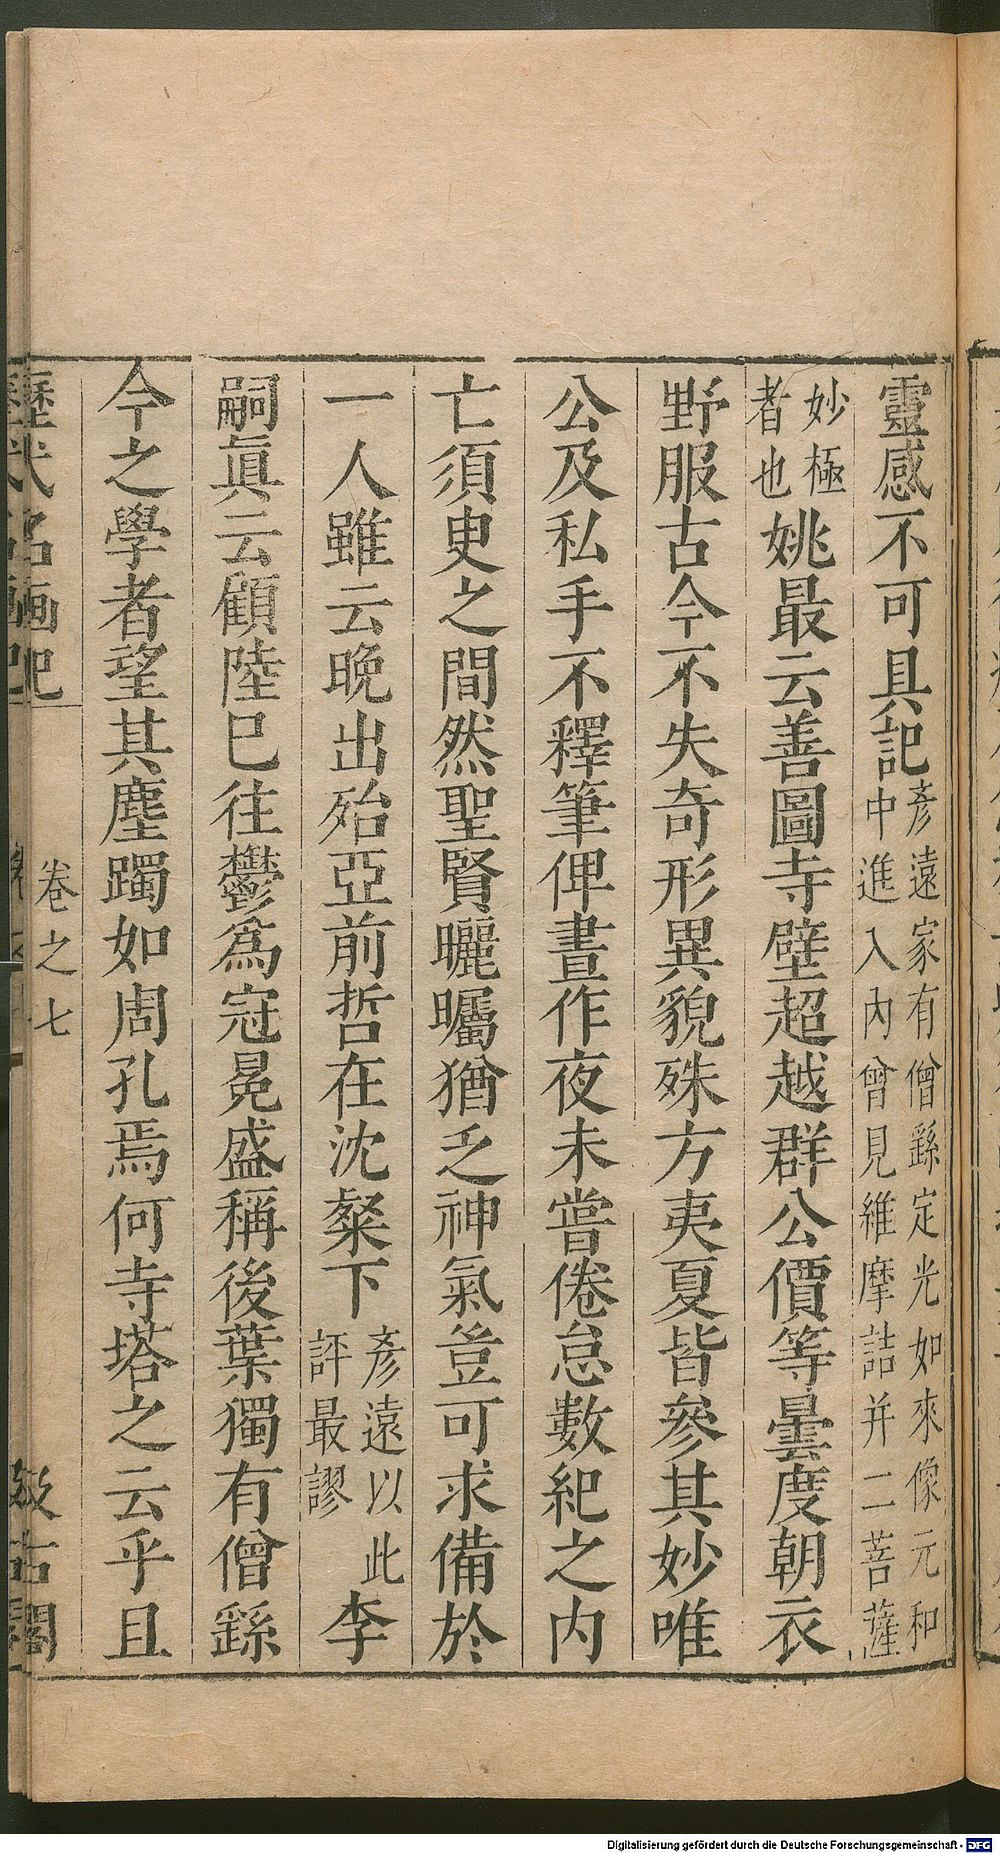 靈感不可具記彥遠家有僧繇定光如來像元和中進入內曾見維摩詰并二菩薩
妙極者也姚最云善圖寺壁超越群公價等曇度朝衣
野服古今不失奇形異貌殊方夷夏皆參其妙唯
公及私手不釋筆俾晝作夜未嘗倦怠數紀之内
亡須臾之間然聖賢曬矚猶乏神氣豈可求備於
一人雖云晚出殆亞前哲在沈粲下彥遠以此評最謬李
嗣眞云顧陸已往鬱爲冠冕盛稱後葉獨有僧繇
今之學者望其塵躅如周孔焉何寺塔之云乎且
歷代名畫記 卷之七 汲古閣
Digitalisierung gefördert durch die Deutsche Forschungsgemeinschaft - DFG